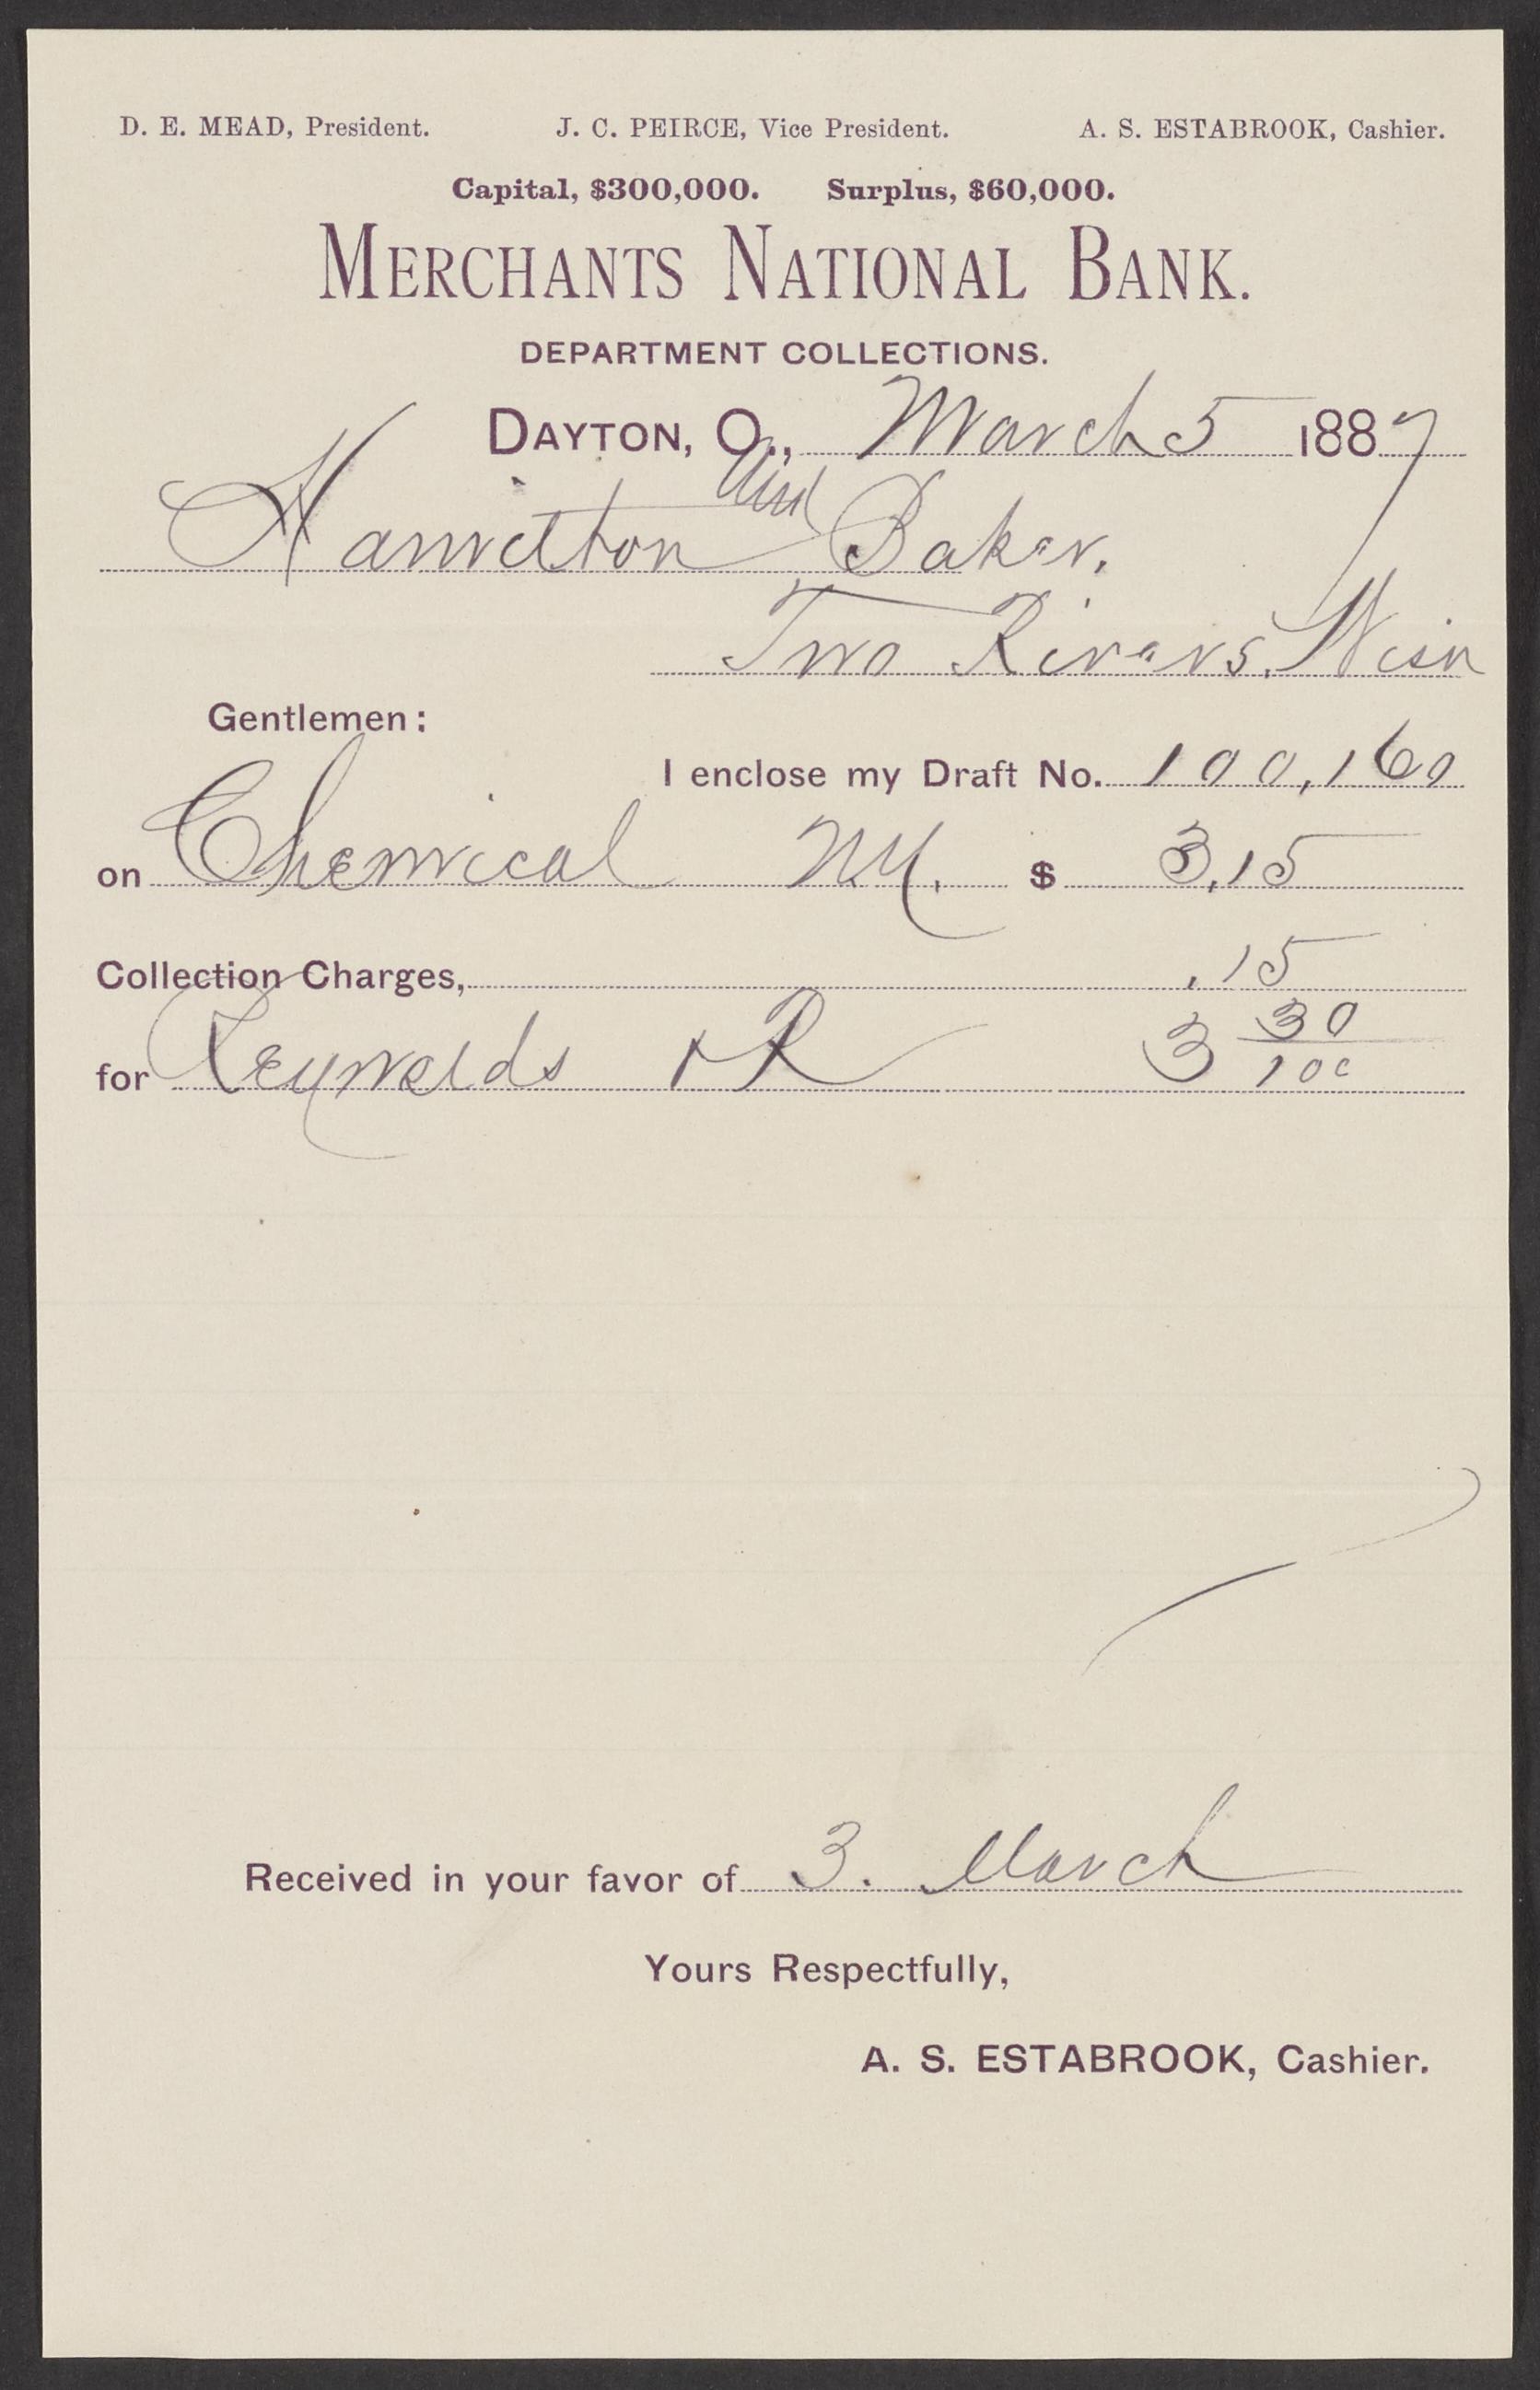 D. E. MEAD, President. J. C. PEIRCE, Vice President. A. S. ESTABROOK, Cashier.
Capital, $300,000. Surplus, $60,000.
MERCHANTS NATIONAL BANK.
DEPARTMENT COLLECTIONS.
DAYTON, O., March 5 1887
Hamilton and Baker.
Two Rivers, Wisn
Gentlemen:
I enclose my Draft No. 100,160
on Chemical N.Y. $ 3.15
Collection Charges, .15
for Reynolds & R 3 30/100
Received in your favor of 3. March
Yours Respectfully,
A. S. ESTABROOK, Cashier.